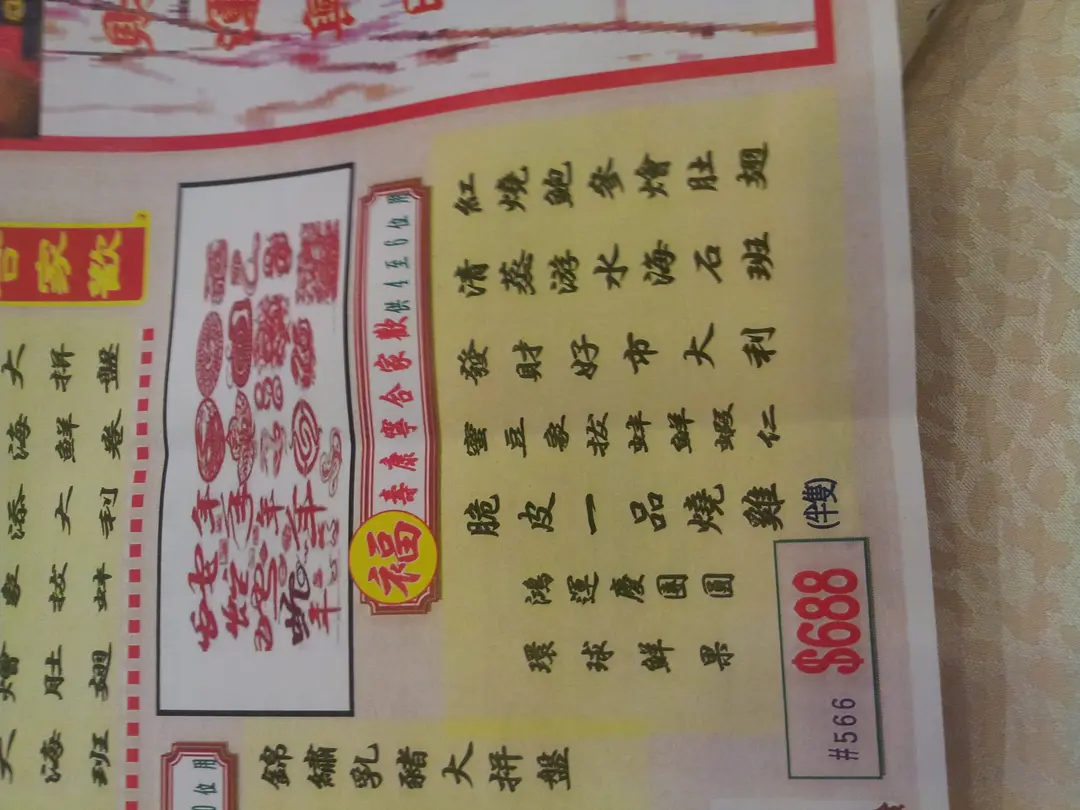 家歡
大拼盤
海鮮卷
添大利
拔蚌
燴肚翅
大海班
蛇年
福壽康寧合家歡 供4至6位用
紅燒鮑參燴肚翅
清蒸游水海石班
發財好市大利
蜜豆家拔蚌鮮蝦仁
脆皮一品燒雞(半隻)
鴻運慶團圓
環球鮮果
#566 $688
0位用
錦繡乳豬大拼盤